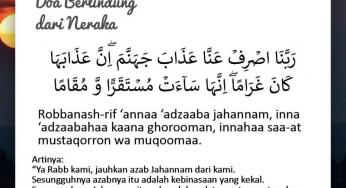 Doa Berlindung
dari Neraka
رَبَّنَا اصْرِفْ عَنَّا عَذَابَ جَهَنَّمَ ۖ اِنَّ عَذَابَهَا
كَانَ غَرَامًا ۖ اِنَّهَا سَاۤءَتْ مُسْتَقَرًّا وَّ مُقَامًا
Robbanash-rif ‘annaa ‘adzaaba jahannam, inna
‘adzaabahaa kaana ghorooman, innahaa saa-at
mustaqorron wa muqoomaa.
Artinya:
“Ya Rabb kami, jauhkan azab Jahannam dari kami.
Sesungguhnya azabnya itu adalah kebinasaan yang kekal.